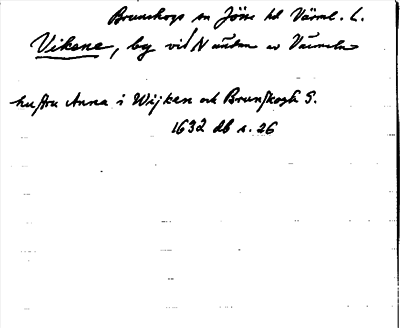 Brunskogs sn Jösse hd Värml. l.
Vikene, by vid N ändan av Värmeln
hustru Anna i Wijken och Brunskogh S.
1632 db s. 26